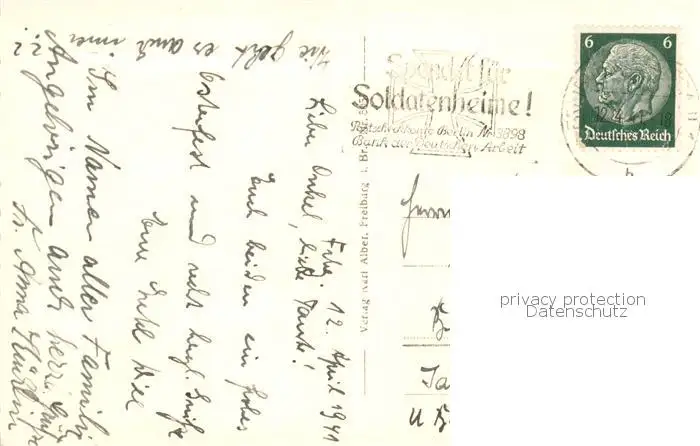 Frbg. 12. April 1941
Liebe Onkel, liebe Tante!
Euch beiden ein frohes
Osterfest und recht herzl. Grüße
Eure
Wie geht es auch immer
??
Im Namen aller Familien
Angehörigen auch herzl. Grüße
Fr. Anna
Verlag Karl Alber, Freiburg i. Br.
Spendet für
Soldatenheime!
Postscheckkonto Berlin Nr. 3898
Bank der Deutschen Arbeit
6 6
Deutsches Reich
12.4.41 18
b
Herrn
privacy protection
Datenschutz